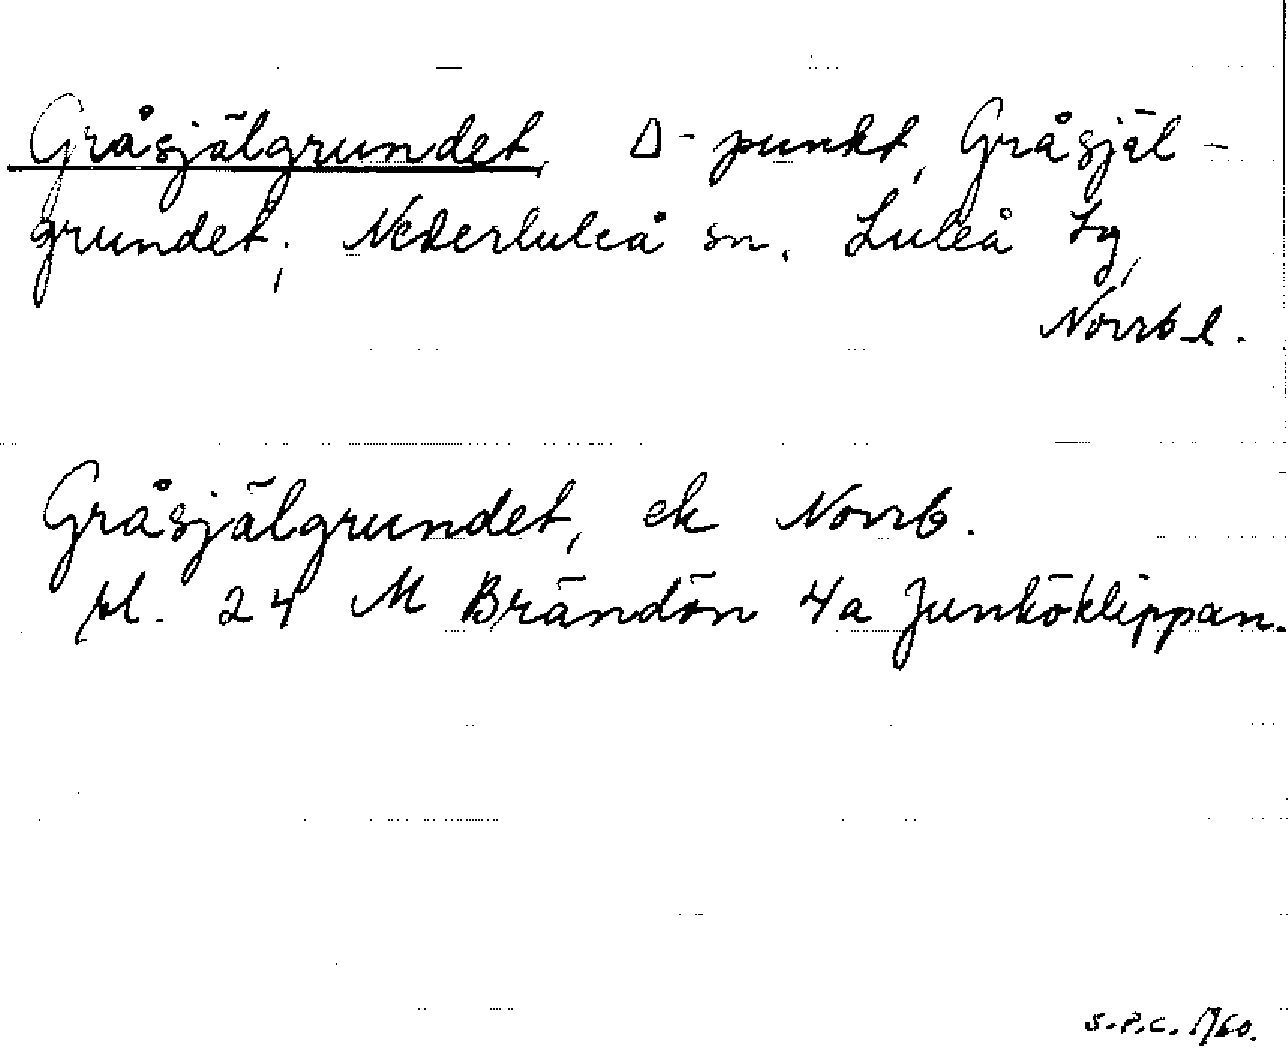 Gråsjälgrundet, Δ-punkt, Gråsjäl-
grundet, Nederluleå sn, Luleå tg,
Norrb l.
Gråsjälgrundet, ek Norrb.
bl. 24 M Brändön 4a Junköklippan.
S.P.C. 1960.